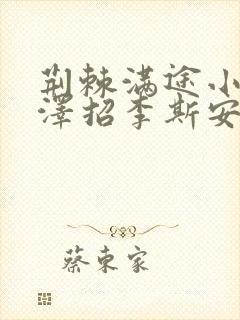 荆棘满途小
泽招李斯安
蔡东家